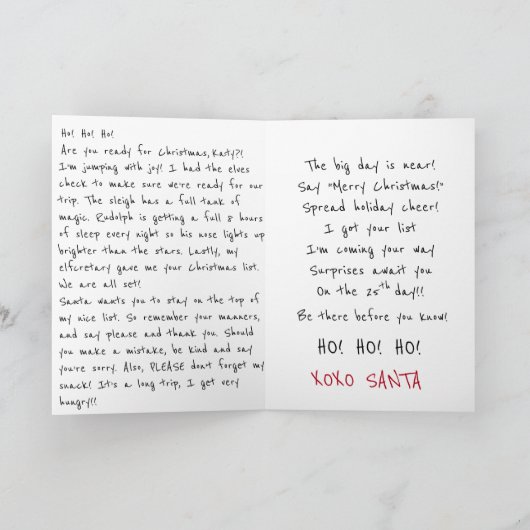 Ho! Ho! Ho!
Are you ready for Christmas, Katy?!
I'm jumping with joy! I had the elves
check to make sure we're ready for our
trip. The sleigh has a full tank of
magic. Rudolph is getting a full 8 hours
of sleep every night so his nose lights up
brighter than the stars. Lastly, my
elfcretary gave me your Christmas list.
We are all set!
Santa wants you to stay on the top of
my nice list. So remember your manners,
and say please and thank you. Should
you make a mistake, be kind and say
you're sorry. Also, PLEASE don't forget my
snack! It's a long trip, I get very
hungry!!
The big day is near!
Say "Merry Christmas!"
Spread holiday cheer!
I got your list
I'm coming your way
Surprises await you
On the 25th day!!
Be there before you know!
HO! HO! HO!
XOXO SANTA